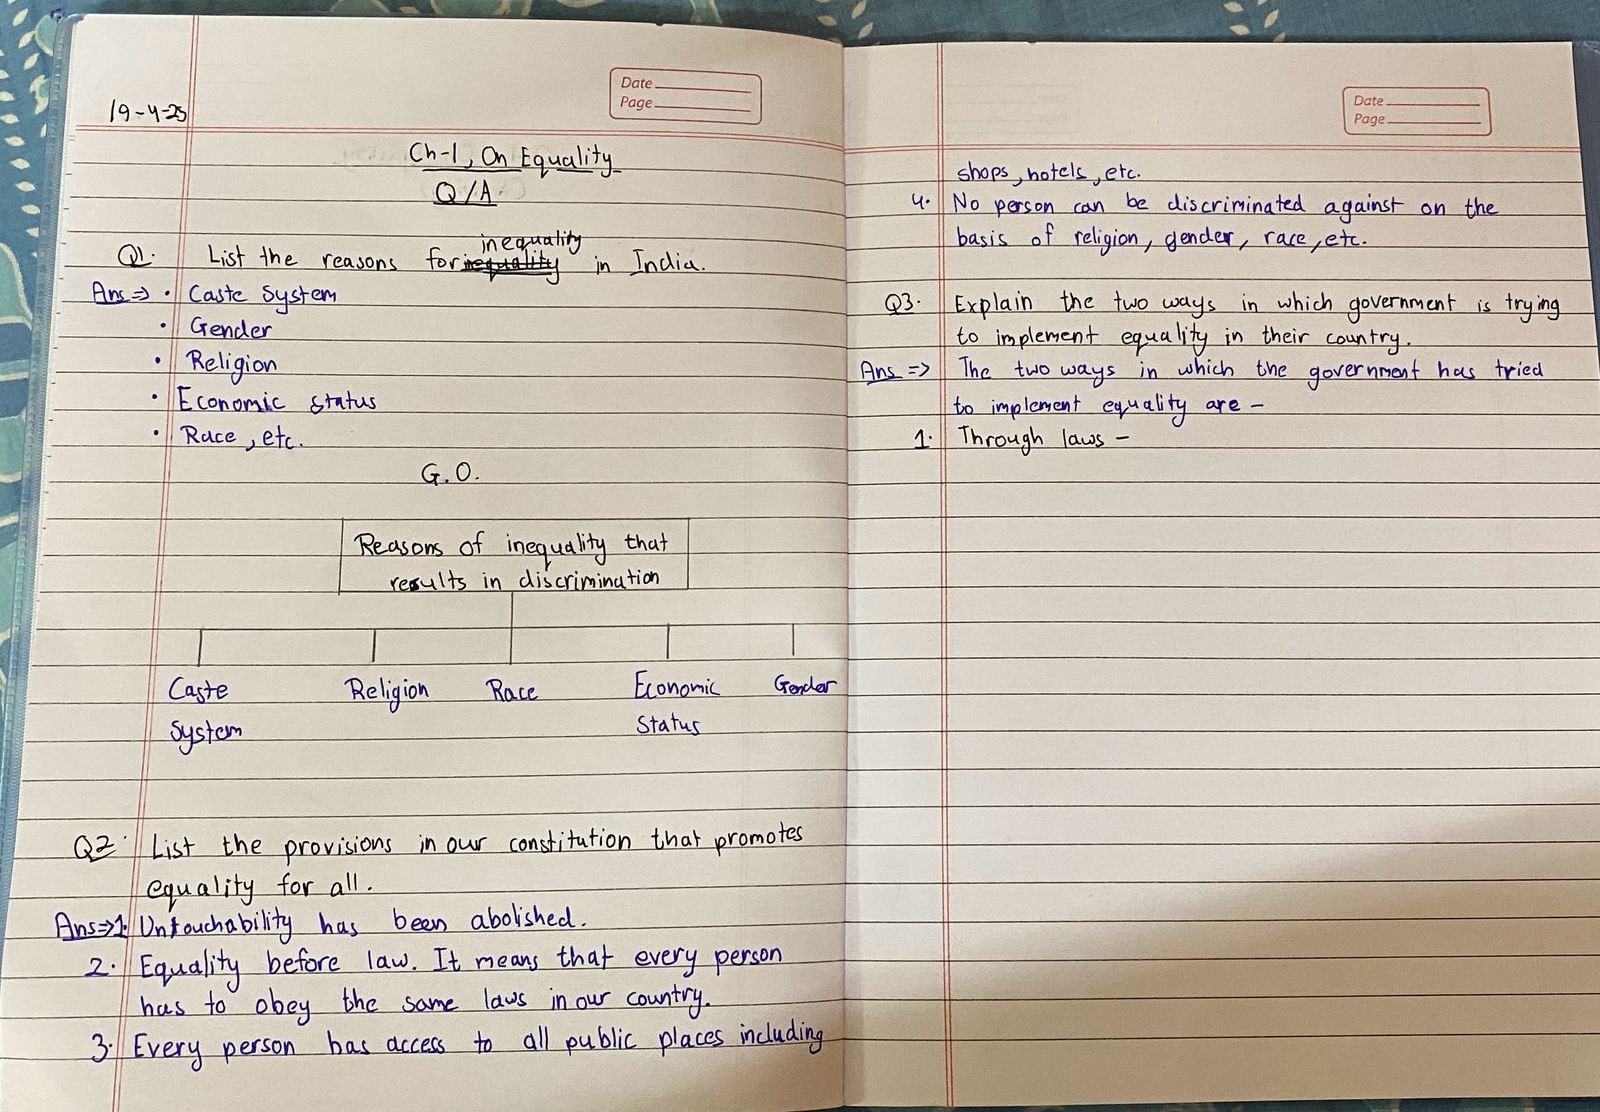 Date
Page
19-4-25
Ch-1, On Equality
Q/A.
inequality
Q1. List the reasons for inequality in India.
Ans => • Caste System
• Gender
• Religion
• Economic status
• Race, etc.
G.O.
Reasons of inequality that
results in discrimination
Caste Religion Race Economic Gender
System Status
Q2. List the provisions in our constitution that promotes
equality for all.
Ans=>1. Untouchability has been abolished.
2. Equality before law. It means that every person
has to obey the same laws in our country.
3. Every person has access to all public places including
Date
Page
shops, hotels, etc.
4. No person can be discriminated against on the
basis of religion, gender, race, etc.
Q3. Explain the two ways in which government is trying
to implement equality in their country.
Ans => The two ways in which the government has tried
to implement equality are -
1. Through laws -